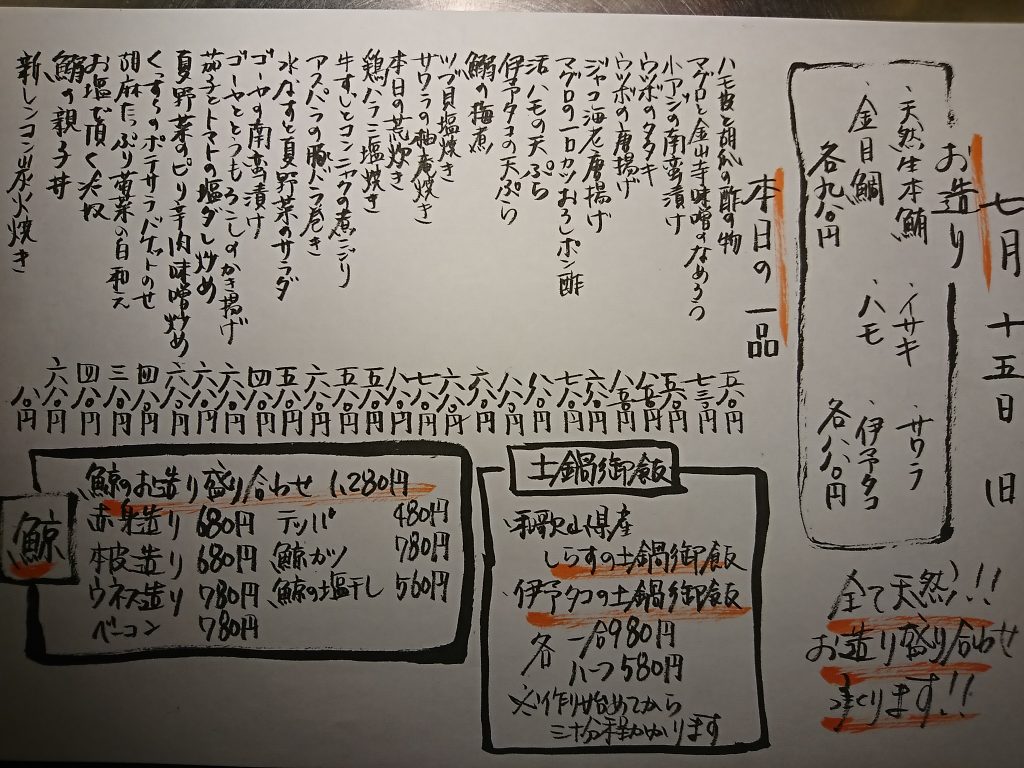 七月十五日 旧
お造り
・天然生本鮪 ・イサキ ・サワラ
・金目鯛 ・ハモ ・伊予タコ
各九八〇円 各八八〇円
全て天然!!
お造り盛り合わせ
承ります!!
本日の一品
ハモ皮と胡瓜の酢の物 五八〇円
マグロと金山寺味噌のなめろう 七三〇円
小アジの南蛮漬け 五八〇円
ウツボのタタキ 八五〇円
ウツボの唐揚げ 八五〇円
ジャコ海老唐揚げ 六八〇円
マグロの一口カツおろしポン酢 七八〇円
活ハモの天ぷら
伊予タコの天ぷら
の梅煮 六八〇円
ツブ貝塩焼き 六八〇円
サワラの柚庵焼き 七八〇円
本日の荒炊き
鶏ハラミ塩焼き 五八〇円
牛すじとコンニャクの煮こごり 五八〇円
アスパラの豚バラ巻き 六八〇円
水なすと夏野菜のサラダ 五八〇円
ゴーヤの南蛮漬け 四八〇円
ゴーヤととうもろこしのかき揚げ 六八〇円
茄子とトマトの塩ダレ炒め 六八〇円
夏野菜のピリ辛肉味噌炒め 六八〇円
ポテサラバケットのせ 四八〇円
胡麻たっぷり菊菜の白和え 三八〇円
お塩で頂く冷奴 四八〇円
の親子丼 六八〇円
新レンコン炭火焼き
土鍋御飯
・和歌山県産
しらすの土鍋御飯
・伊予タコの土鍋御飯
各 一合980円
ハーフ580円
※作り始めてから
三十分程かかります
鯨
鯨のお造り盛り合わせ 1,280円
赤身造り 680円 テッパ 480円
本皮造り 680円 鯨カツ 780円
ウネス造り 780円 鯨の塩干し 560円
ベーコン 780円